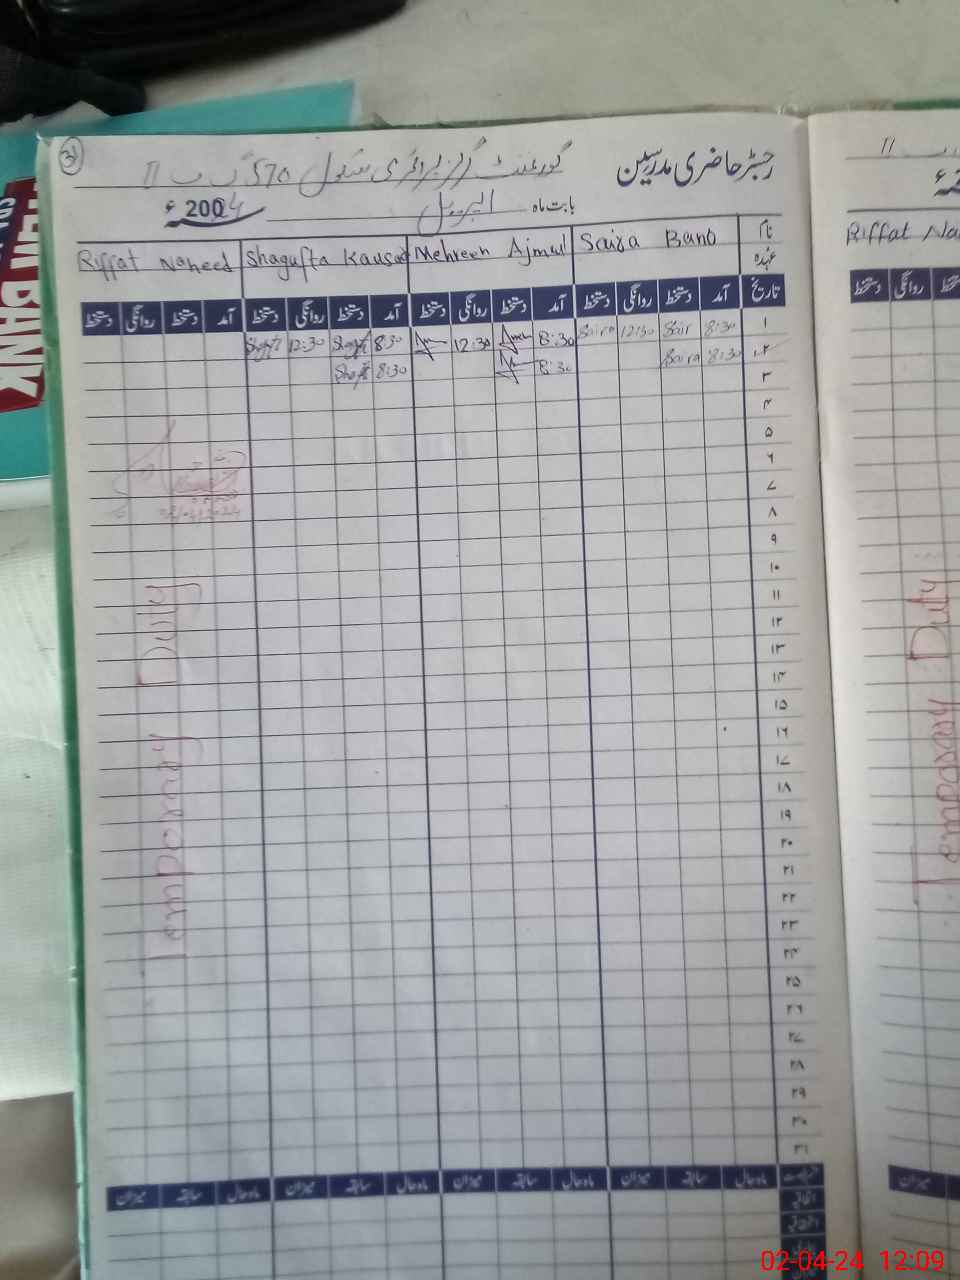 31
رجسٹر حاضری مدرسین گورنمنٹ گرلز پرائمری سکول 570 گ ب II
بابت ماہ اپریل 2024ء
نام
عہدہ
Saira Bano Mehreen Ajmal Shagufta Kausar Riffat Naheed
تاریخ آمد دستخط روانگی دستخط آمد دستخط روانگی دستخط آمد دستخط روانگی دستخط آمد دستخط روانگی دستخط
۱ 8:30 Sair 12:30 Saira 8:30 12:30 8:30 Shaguf 12:30
۲ 8:30 Saira 8:30 8:30 Shaguf
۳
۴
۵
۶
۷
۸
۹
۱۰
۱۱
۱۲
۱۳
۱۴
۱۵
۱۶
۱۷
۱۸
۱۹
۲۰
۲۱
۲۲
۲۳
۲۴
۲۵
۲۶
۲۷
۲۸
۲۹
۳۰
۳۱
Temporary Duty
ماہ حال سابقہ میزان ماہ حال سابقہ میزان ماہ حال سابقہ میزان ماہ حال سابقہ میزان
اتفاقیہ
استحقاقیہ
Riffat Na
روانگی دستخط
Temporary Duty
میزان
BANK
02-04-24 12:09